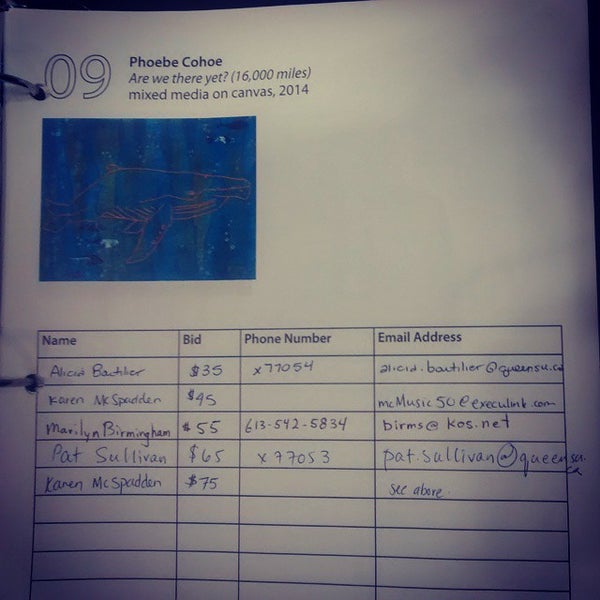 09
Phoebe Cohoe
Are we there yet? (16,000 miles)
mixed media on canvas, 2014
Name Bid Phone Number Email Address
Alicia Boutilier $35 x77054 alicia.boutilier@queensu.ca
Karen McSpadden $45 mcmusic50@execulink.com
Marilyn Birmingham $55 613-542-5834 birms@kos.net
Pat Sullivan $65 x77053 pat.sullivan@queensu.
ca
Karen McSpadden $75 see above.